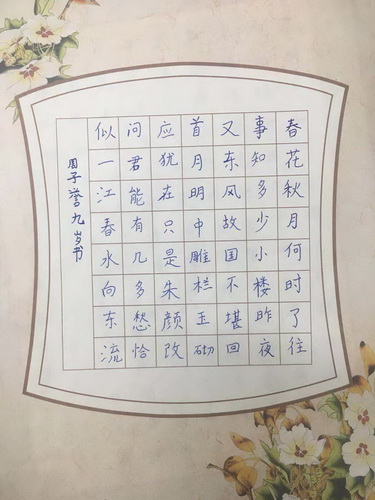 春花秋月何时了往
事知多少小楼昨夜
又东风故国不堪回
首月明中雕栏玉砌
应犹在只是朱颜改
问君能有几多愁恰
似一江春水向东流
周子誉九岁书